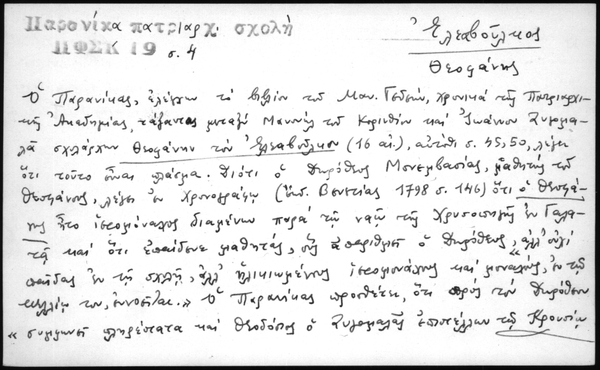 Παρανίκα πατριαρχ. σχολὴ
ΠΦΣΚ 19 σ. 4
Ἐλεαβοῦλκος
Θεοφάνης
Ὁ Παρανίκας, ἐλέγχων τὸ βιβλίον τοῦ Μαν. Γεδεών, χρονικὰ τῆς Πατριαρχι-
κῆς Ἀκαδημίας, τάξαντος μεταξὺ Μανουὴλ τοῦ Κορινθίου καὶ Ἰωάννου Ζυγομα-
λᾶ σχολάρχην Θεοφάνην τὸν Ἐλεαβοῦλκον (16 αἰ.), αὐτόθι σ. 45, 50, λέγει
ὅτι τοῦτο εἶναι πλάσμα. Διότι ὁ Δωρόθεος Μονεμβασίας, μαθητὴς τοῦ
Θεοφάνους, λέγει ἐν Χρονογράφῳ (ἔκδ. Βενετίας 1798 σ. 446) ὅτι ὁ Θεοφά-
νης ἦτο ἱερομόναχος διαμένων παρὰ τῷ ναῷ τῆς Χρυσοπηγῆς ἐν Γαλα-
τᾷ καὶ ὅτι ἐπαίδευε μαθητάς, οὓς ἀπαριθμεῖ ὁ Δωρόθεος, «ἀλλ' οὐχὶ
παῖδας ἐν τῇ σχολῇ, ἀλλ' ἡλικιωμένους ἱερομονάχους καὶ μοναχούς, ἐν τῷ
κελλίῳ του, ἐννοεῖται.» Ὁ Παρανίκας προσθέτει, ὅτι πρὸς τὸν Δωρόθεον
«συμφωνεῖ πληρέστατα καὶ Θεοδόσιος ὁ Ζυγομαλᾶς ἐπιστέλλων τῷ Κρουσίῳ